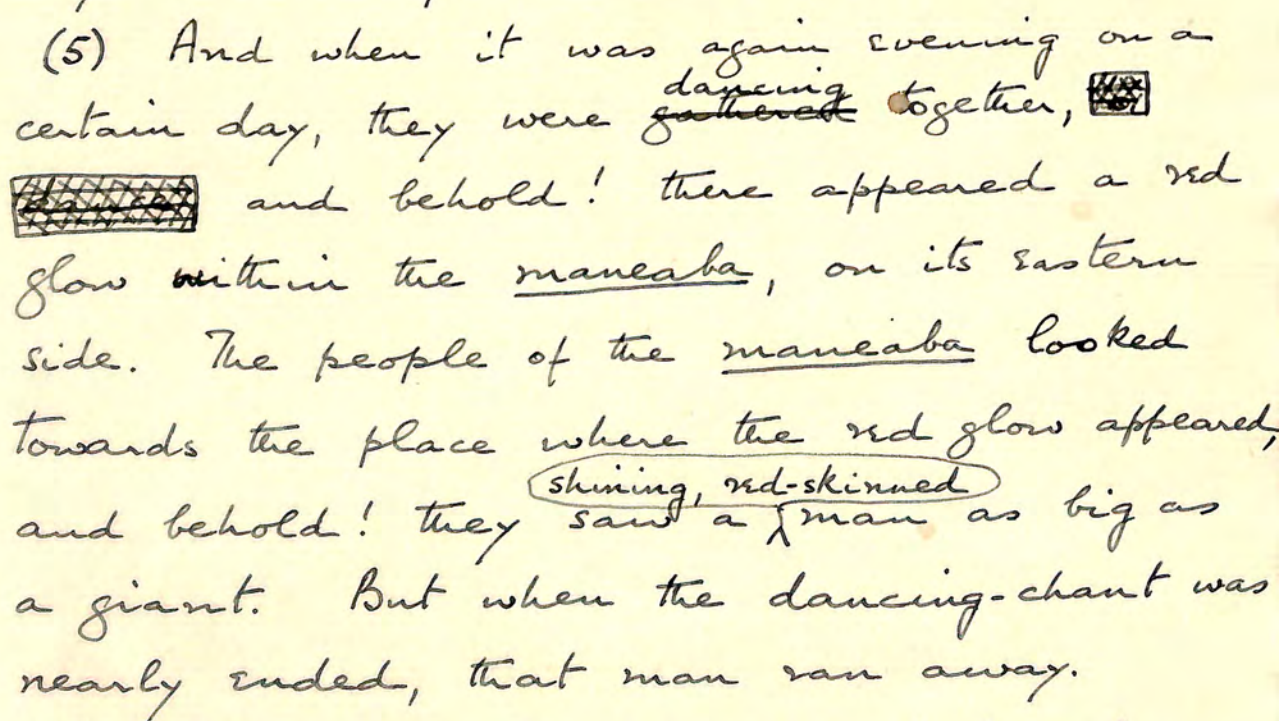 (5) And when it was again evening on a
certain day, they were dancing gathered together,
and behold! there appeared a red
glow within the maneaba, on its eastern
side. The people of the maneaba looked
towards the place where the red glow appeared,
shining, red-skinned
and behold! they saw a man as big as
a giant. But when the dancing-chant was
nearly ended, that man ran away.